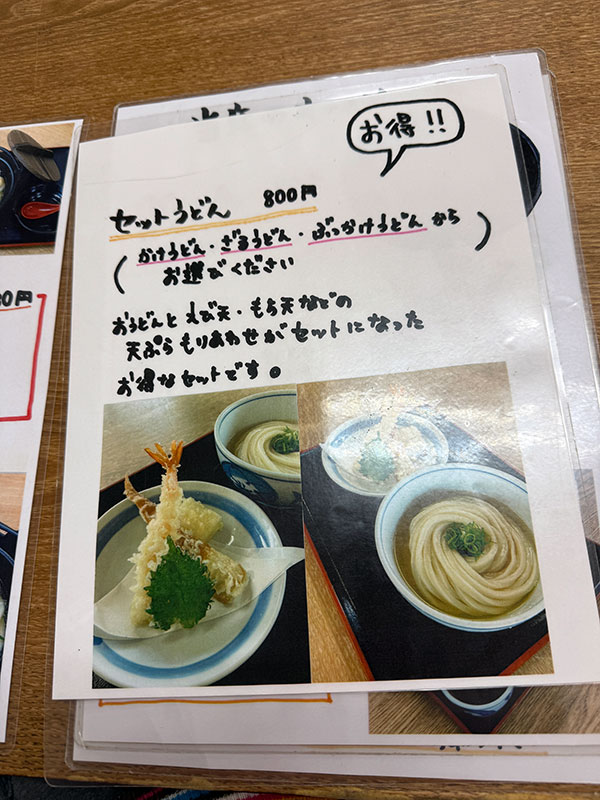 お得!!
セットうどん 800円
(かけうどん・ざるうどん・ぶっかけうどんから
お選びください)
おうどんと えび天・もち天などの
天ぷらもりあわせがセットになった
お得なセットです。
0円